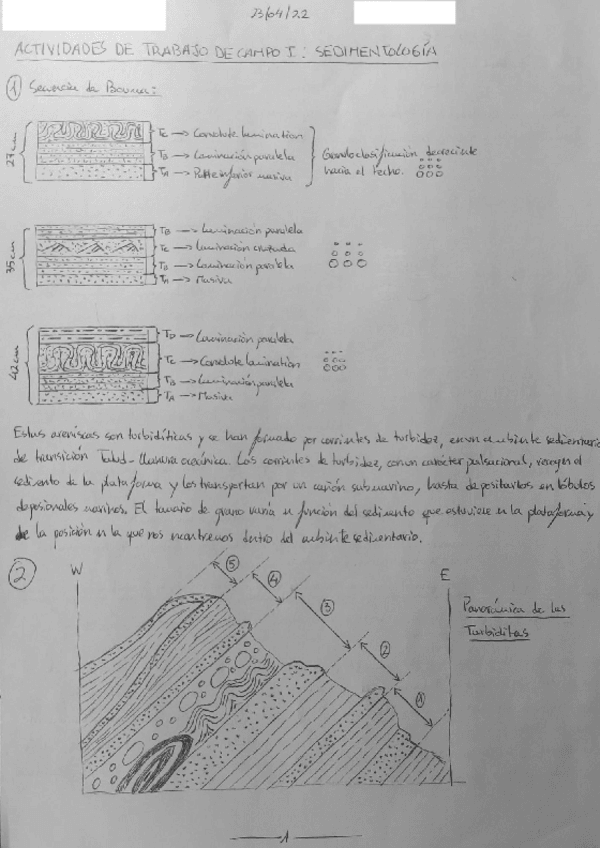 23/04/22
ACTIVIDADES DE TRABAJO DE CAMPO I: SEDIMENTOLOGÍA
① Secuencia de Bouma:
27 cm
Tc → Convolute lamination
TB → Laminación paralela
TA → Parte inferior masiva
Granoclasificación decreciente
hacia el techo.
35 cm
TD → Laminación paralela
Tc → Laminación cruzada
TB → Laminación paralela
TA → Masiva
42 cm
TD → Laminación paralela
Tc → Convolute lamination
TB → Laminación paralela
TA → Masiva
Estas areniscas son turbidíticas y se han formado por corrientes de turbidez, en un ambiente sedimentario
de transición Talud-llanura oceánica. Las corrientes de turbidez, con un carácter pulsacional, recogen el
sedimento de la plataforma y los transportan por un cañón submarino, hasta depositarlos en lóbulos
deposicionales marinos. El tamaño de grano varía en función del sedimento que estuviese en la plataforma y
de la posición en la que nos encontremos dentro del ambiente sedimentario.
②
W
E
⑤
④
③
②
①
Panorámica de las
Turbiditas
1